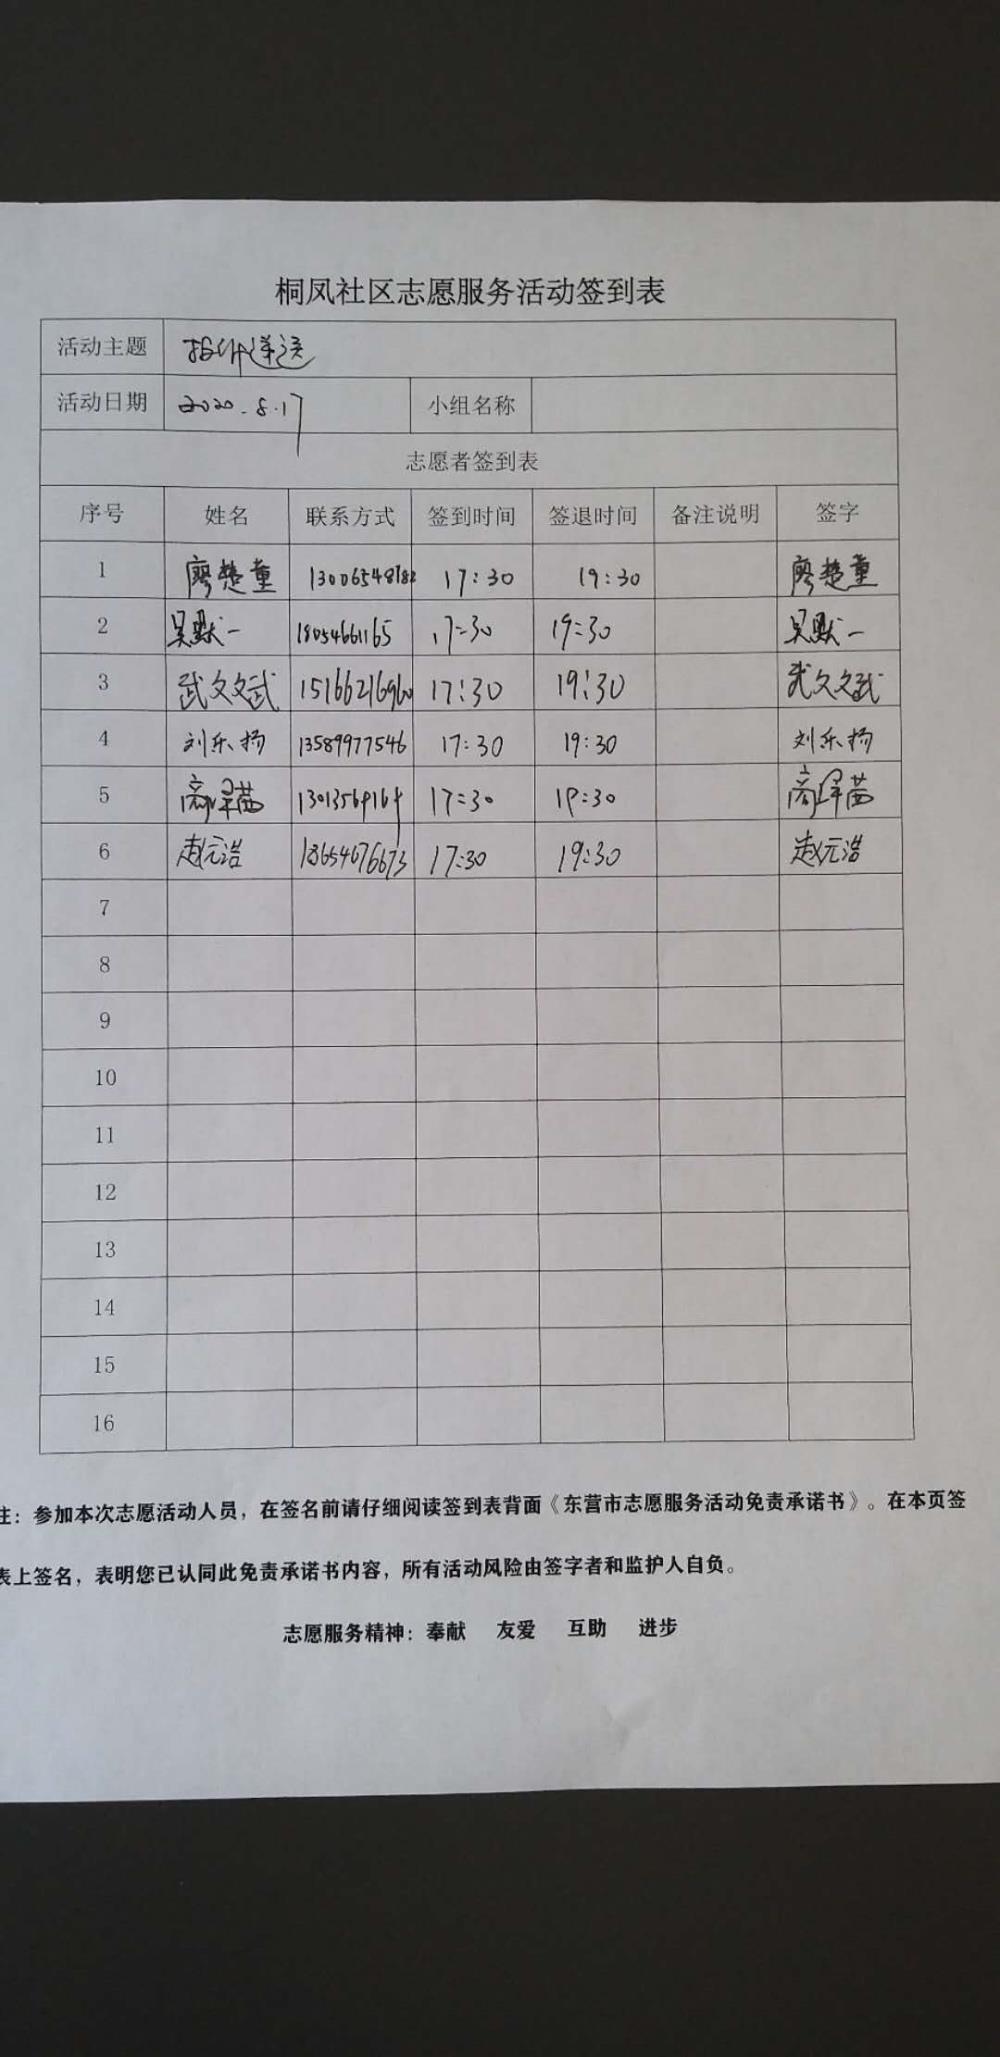 桐凤社区志愿服务活动签到表
活动主题 报纸递送
活动日期 2020.8.17 小组名称
志愿者签到表
序号 姓名 联系方式 签到时间 签退时间 备注说明 签字
1 廖楚童 17:30 19:30 廖楚童
2 吴默一 18054661165 17:30 19:30 吴默一
3 武文文武 17:30 19:30 武文文武
4 刘乐扬 13589977546 17:30 19:30 刘乐扬
5 17:30 19:30
6 赵元浩 18654676673 17:30 19:30 赵元浩
7
8
9
10
11
12
13
14
15
16
注：参加本次志愿活动人员，在签名前请仔细阅读签到表背面《东营市志愿服务活动免责承诺书》。在本页签
表上签名，表明您已认同此免责承诺书内容，所有活动风险由签字者和监护人自负。
志愿服务精神：奉献 友爱 互助 进步